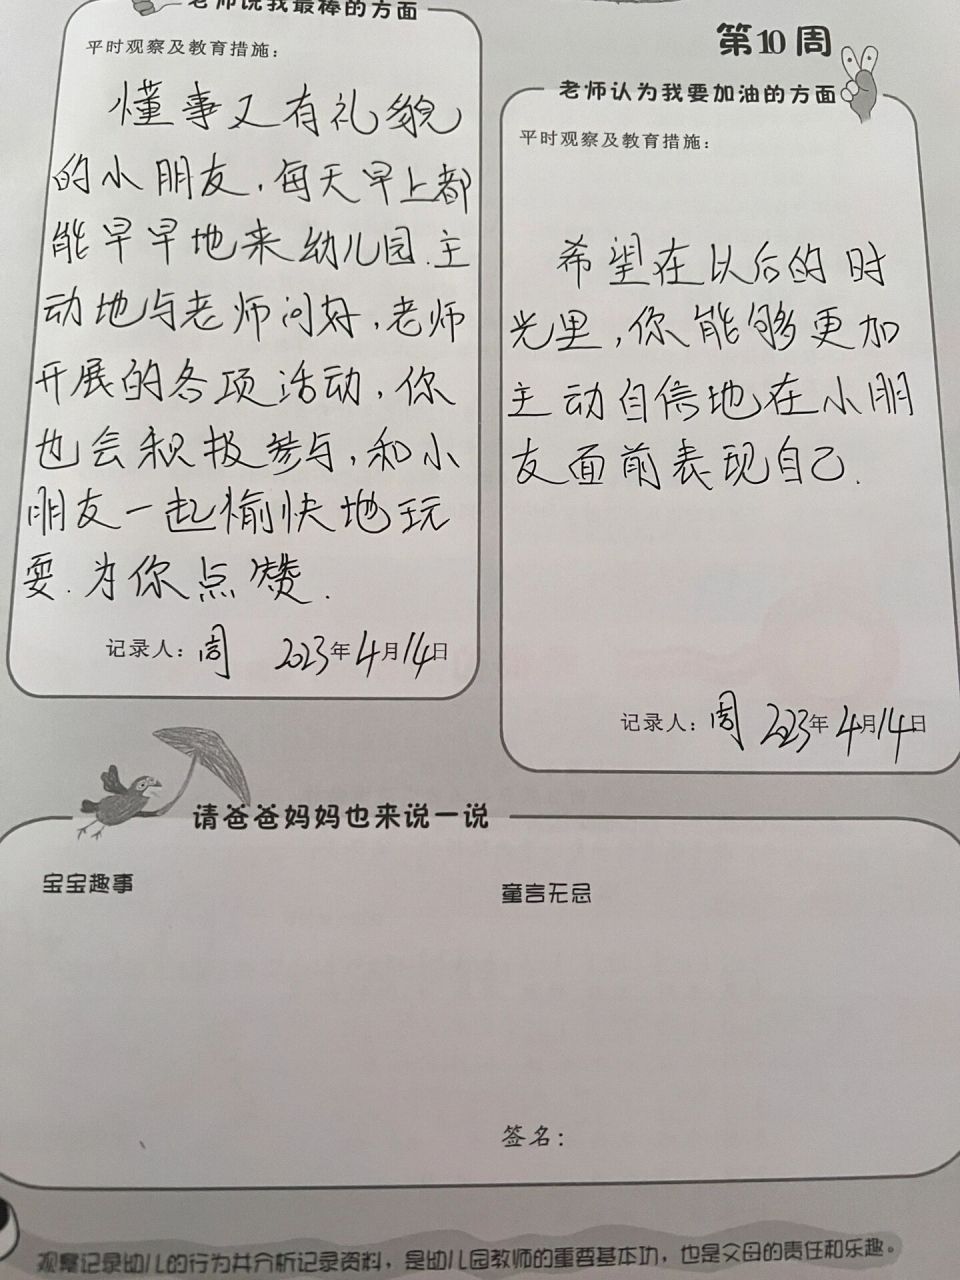 老师说我最棒的方面
平时观察及教育措施：
懂事又有礼貌
的小朋友，每天早上都
能早早地来幼儿园.主
动地与老师问好，老师
开展的各项活动，你
也会积极参与，和小
朋友一起愉快地玩
耍.为你点赞.
记录人：周 2023年4月14日
第10周
老师认为我要加油的方面
平时观察及教育措施：
希望在以后的时
光里，你能够更加
主动自信地在小朋
友面前表现自己.
记录人：周 2023年4月14日
请爸爸妈妈也来说一说
宝宝趣事
童言无忌
签名：
观察记录幼儿的行为并分析记录资料，是幼儿园教师的重要基本功，也是父母的责任和乐趣。